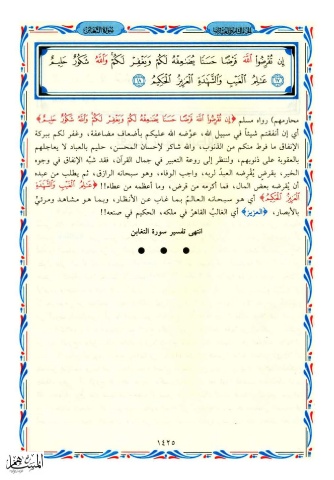 سورة التغابن
إِن تُقْرِضُوا۟ ٱللَّهَ قَرْضًا حَسَنًا يُضَٰعِفْهُ لَكُمْ وَيَغْفِرْ لَكُمْ وَٱللَّهُ شَكُورٌ حَلِيمٌ
١٧ عَٰلِمُ ٱلْغَيْبِ وَٱلشَّهَٰدَةِ ٱلْعَزِيزُ ٱلْحَكِيمُ ١٨
محارمهم) رواه مسلم ﴿إِن تُقْرِضُوا۟ ٱللَّهَ قَرْضًا حَسَنًا يُضَٰعِفْهُ لَكُمْ وَيَغْفِرْ لَكُمْ وَٱللَّهُ شَكُورٌ حَلِيمٌ﴾
أي إن أنفقتم شيئاً في سبيل الله، عوَّضه الله عليكم بأضعاف مضاعفة، وغفر لكم ببركة
الإنفاق ما فرط منكم من الذنوب، والله شاكر لإحسان المحسن، حليم بالعباد لا يعاجلهم
بالعقوبة على ذنوبهم، ولننظر إلى روعة التعبير في جمال القرآن، فقد شبَّه الإنفاق في وجوه
الخير، بقرض يُقرضه العبدُ لربه، واجب الوفاء، وهو سبحانه الرازق، ثم يطلب من عبده
أن يُقرضه بعض المال، فما أكرمه من قرض، وما أعظمه من عطاء!! ﴿عَٰلِمُ ٱلْغَيْبِ وَٱلشَّهَٰدَةِ
ٱلْعَزِيزُ ٱلْحَكِيمُ﴾ أي هو سبحانه العالم بما غاب عن الأنظار، وبما هو مشاهد ومرئيٌ
بالأبصار، ﴿العزيز﴾ أي الغالبُ القاهرُ في ملكه، الحكيم في صنعه!!
انتهى تفسير سورة التغابن
١٤٢٥